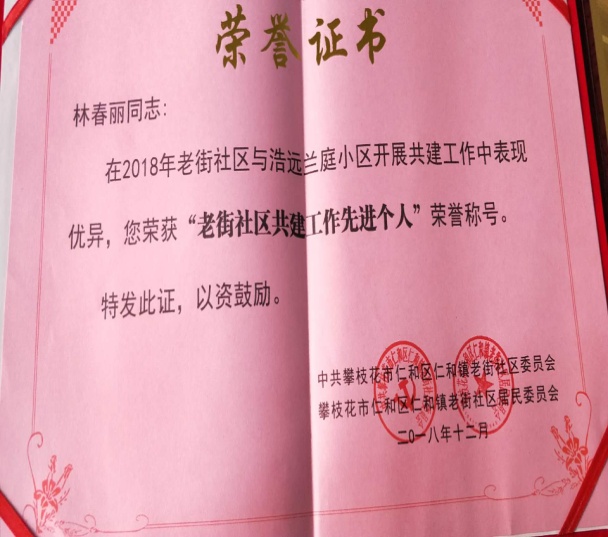 荣誉证书
林春丽同志：
在2018年老街社区与浩远兰庭小区开展共建工作中表现
优异，您荣获“老街社区共建工作先进个人”荣誉称号。
特发此证，以资鼓励。
中共攀枝花市仁和区仁和镇老街社区委员会
攀枝花市仁和区仁和镇老街社区居民委员会
二〇一八年十二月